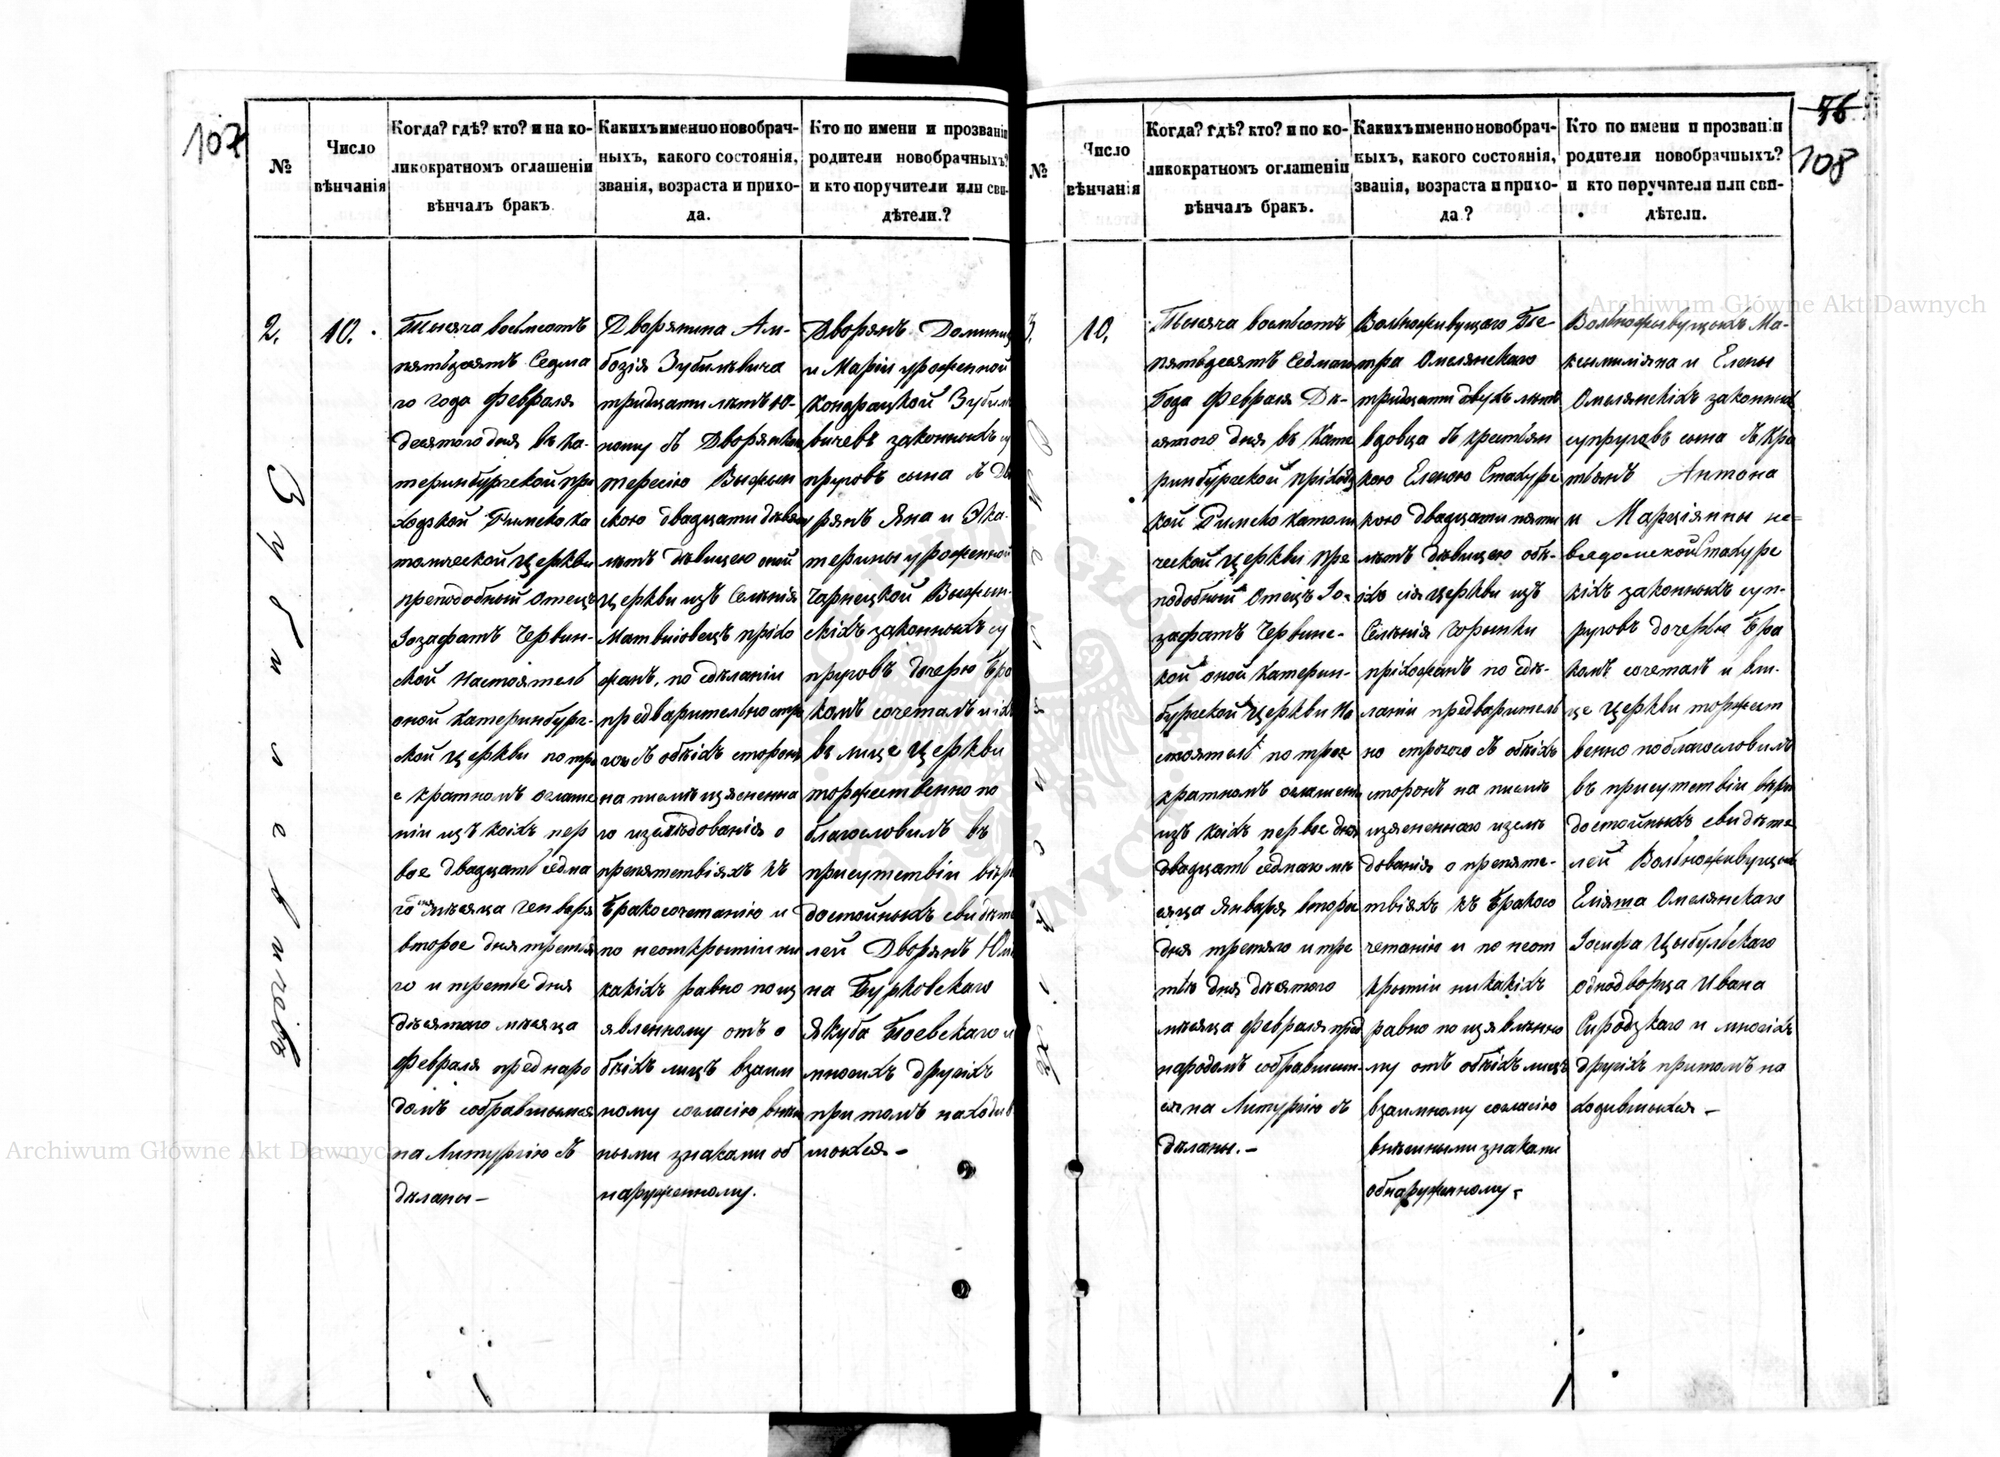 107
№
Число
вѣнчанія
Когда? гдѣ? кто? и на ко-
ликократномъ оглашеніи
вѣнчалъ бракъ.
Какихъ именно новобрач-
ныхъ, какого состоянія,
званія, возраста и прихо-
да.
Кто по имени и прозванію
родители новобрачныхъ?
и кто поручители или сви-
дѣтели.?
2.
Зубилевичъ
10.
Тысяча восемсотъ
пятьдесятъ Седма
го года Февраля
десятого дня въ Ка-
теринбургской при
ходской Римско ка
толической церкви
преподобный Отецъ
Іозафатъ Червин-
ской Настоятель
оной Катеринбург-
ской церкви по тре
х кратномъ оглаше
ніи изъ коихъ пер
вое двадцать седма
го мѣсяца Генваря
второе дня третья
го и третье дня
десятого мѣсяца
Февраля предъ наро
домъ собравшимся
на Литургію з
дѣланы —
Дворянина Ам-
возія Зубилевича
тридцати лѣтъ ю-
ношу съ Дворянкою
Терезіею Выжин
скою двадцати девяти
лѣтъ дѣвицею оной
церкви изъ Селенія
Матвіовецъ прихо
жанъ, по сдѣланіи
предварительно стро
гого съ обѣихъ сторонъ
на письмѣ изясненна
го изслѣдованія о
препятствіяхъ къ
бракосочетанію и
по неоткрытіи ни
какихъ равно по из
явленному отъ о
бѣихъ лицъ взаим
ному согласію внѣш
ными знаками об
наруженному.
Дворянъ Доминика
и Маріи урожденной
Кондрацкой Зубиле
вичевъ законныхъ су
пруговъ сына съ Дво
рянъ Яна и Ека-
терины урожденной
Чарнецкой Выжин-
скихъ законныхъ су
пруговъ дочерю бра
комъ сочеталъ и ихъ
въ лице Церкви
торжественно по
благословилъ въ
присутствіи вѣро
достойныхъ свидѣте
лей Дворянъ Юли
на Бурковскаго
Якуба Боевскаго и
многихъ другихъ
при томъ находив
шихся —
76
108
№
Число
вѣнчанія
Когда? гдѣ? кто? и по ко-
ликократномъ оглашеніи
вѣнчалъ бракъ.
Какихъ именно новобрач-
ныхъ, какого состоянія,
званія, возраста и прихо-
да?
Кто по имени и прозванію
родители новобрачныхъ?
и кто поручители или сви-
дѣтели.
3.
10.
Тысяча восемсотъ
пятьдесятъ Седмаго
Года Февраля Де-
сятого дня въ Кате
ринбургской приход
кой Римско Католи
ческой церкви Пре
подобный Отецъ Іо-
зафатъ Червинс-
кой оной Катерин-
бургской церкви На
стоятель по трех
кратномъ оглашеніи
изъ коихъ первое дня
двадцать седмаго мѣ
сяца Января второе
дня третяго и тре
тіе дня десятого
мѣсяца Февраля предъ
народомъ собравшим-
ся на Литургію з
дѣланы. —
Вольноживущаго Пе
тра Омелянскаго
тридцати двухъ лѣтъ
вдовца съ крестьян
кою Еленою Стахурс
кою двадцати пяти
лѣтъ дѣвицею обѣ-
ихъ сія церкви изъ
Селенія Горынки
прихожанъ по сдѣ-
ланіи предваритель
но строгого съ обѣихъ
сторонъ на письмѣ
изясненнаго изслѣ
дованія о препятс-
твіяхъ къ бракосо
четанію и по неот
крытіи никакихъ
равно по изявленно
му отъ обѣихъ лицъ
взаимному согласію
внѣшными знаками
обнаруженному —
Вольноживущихъ Ма-
ксымиліяна и Елены
Омелянскихъ законныхъ
супруговъ сына съ Кре
стьянъ Антона
и Марціянны не-
вѣдомской Стахурс
кихъ законныхъ суп-
руговъ дочерью бра
комъ сочеталъ и вли
це церкви торжест
венно поблагословилъ
въ присутствіи вѣро
достойныхъ свидѣте
лей Вольноживущихъ
Омелянскаго
Іосифа Цыбульскаго
однодворца Ивана
и многихъ
другихъ притомъ на
ходившихся —
Archiwum Główne Akt Dawnych
Archiwum Główne Akt Dawnych